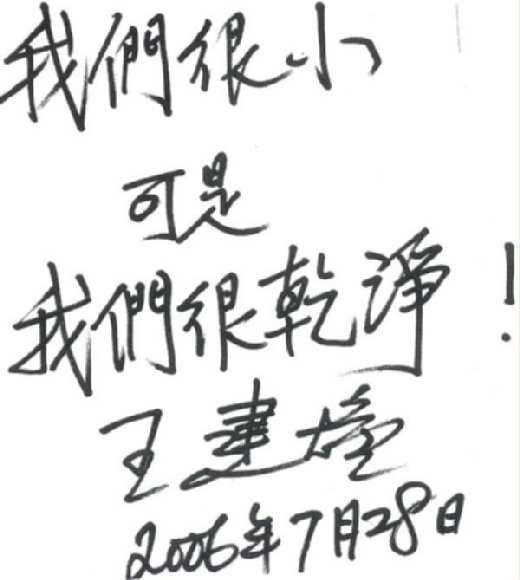 我們很小
可是
我們很乾淨!
王建煊
2006年7月28日